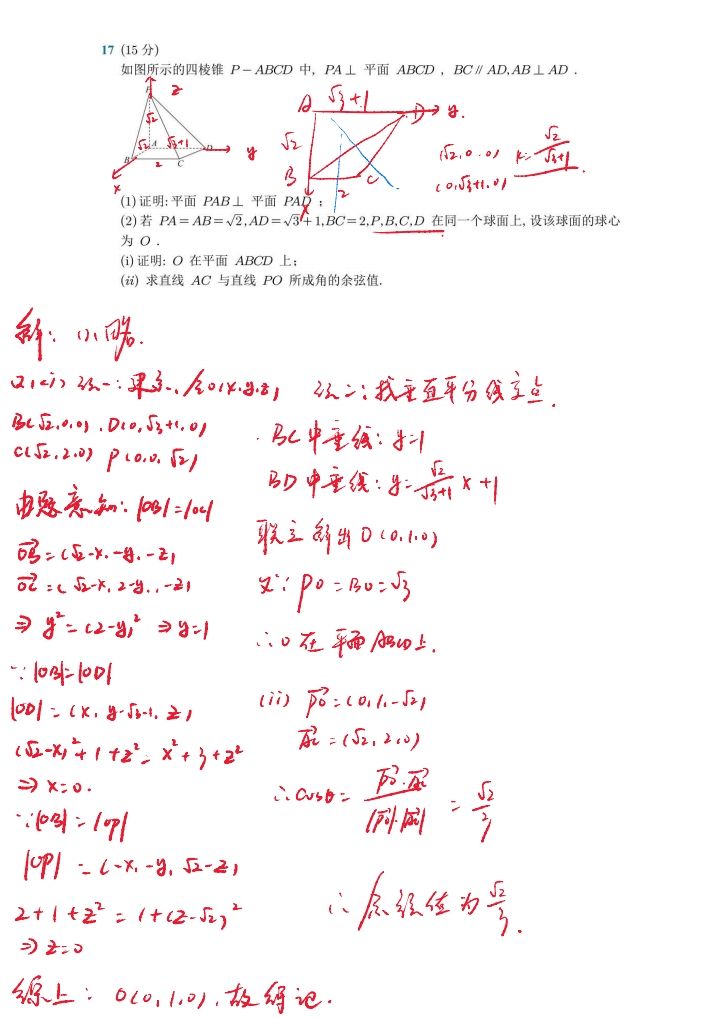 17 (15 分)
如图所示的四棱锥 P－ABCD 中, PA⊥ 平面 ABCD , BC∥AD,AB⊥AD .
P z
√2
√2 A √3+1 D y
B 2 C
x
A √3+1 D y.
√2
B 2 C
x
(√2,0,0)
(0,√3+1,0)
k=√2/(√3+1)
(1)证明:平面 PAB⊥ 平面 PAD ;
(2)若 PA=AB=√2,AD=√3+1,BC=2,P,B,C,D 在同一个球面上, 设该球面的球心
为 O .
(i)证明: O 在平面 ABCD 上;
(ii) 求直线 AC 与直线 PO 所成角的余弦值.
解: (1) 略.
(2)(i) 法一: 建系、令O(x,y,z)
B(√2,0,0) . D(0,√3+1,0)
C(√2,2,0) P(0,0,√2)
由题意知: |OB|=|OC|
OB=(√2-x,-y,-z)
OC=(√2-x,2-y,-z)
⇒ y²=(2-y)² ⇒y=1
∵|OB|=|OD|
|OD|=(x, y-√3-1, z)
(√2-x)²+1+z²=x²+3+z²
⇒ x=0.
∵|OB|=|OP|
|OP|=(-x,-y,√2-z)
2+1+z²=1+(z-√2)²
⇒ z=0
综上: O(0,1,0),故得证.
法二: 找垂直平分线交点.
BC中垂线: y=1
BD中垂线: y=√2/(√3+1) x+1
联立解出O(0,1,0)
又∵PO=BO=√3
∴O在平面ABCD上.
(ii) PO=(0,1,-√2)
AC=(√2,2,0)
∴cosθ=PO·AC/|PO|·|AC| = √2/3
∴余弦值为√2/3.